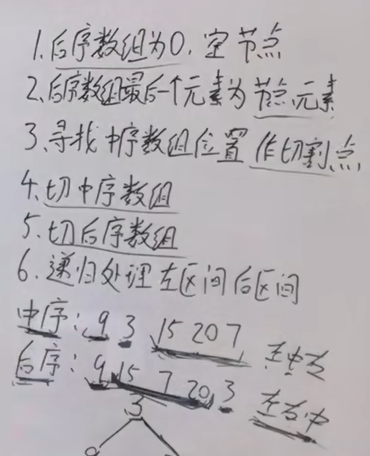 1.后序数组为0,空节点
2、后序数组最后一个元素为节点元素
3、寻找中序数组位置作切割点
4.切中序数组
5.切后序数组
6.递归处理左区间后区间
中序:9 3 15 20 7 左中右
后序:9 15 7 20,3 左右中
3